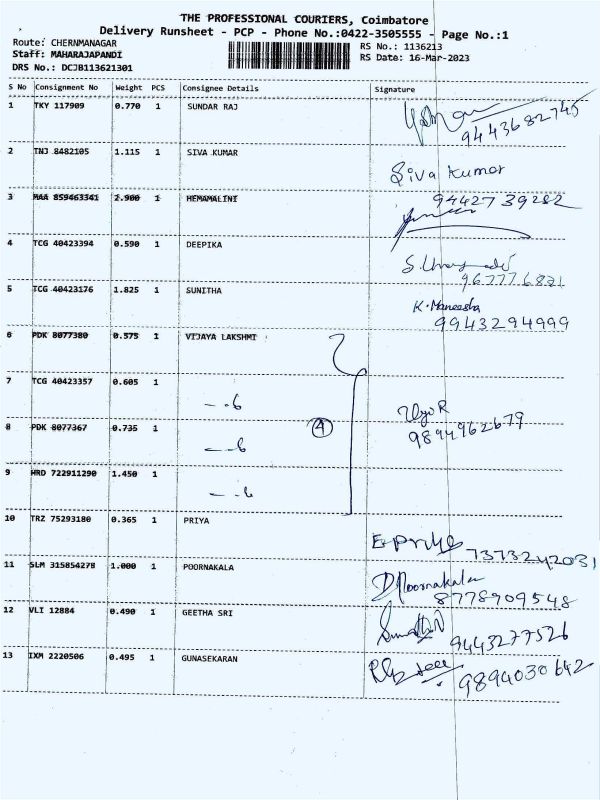 THE PROFESSIONAL COURIERS, Coimbatore
Delivery Runsheet - PCP - Phone No.:0422-3505555 - Page No.:1
Route: CHERNMANAGAR
Staff: MAHARAJAPANDI
DRS No.: DCJB113621301
RS No.: 1136213
RS Date: 16-Mar-2023
S No Consignment No Weight PCS Consignee Details Signature
1 TKY 117909 0.770 1 SUNDAR RAJ
9443682745
2 TNJ 8482105 1.115 1 SIVA KUMAR
Siva Kumar
9442739282
3 MAA 859463341 2.900 1 HEMAMALINI
4 TCG 40423394 0.590 1 DEEPIKA
9677776831
5 TCG 40423176 1.825 1 SUNITHA
K. Maneesha
9943294999
6 PDK 8077380 0.575 1 VIJAYA LAKSHMI
7 TCG 40423357 0.605 1
8 PDK 8077367 0.735 1
4
9894962679
9 HRD 722911290 1.450 1
10 TRZ 75293180 0.365 1 PRIYA
E. Priya 7373242031
11 SLM 315854278 1.000 1 POORNAKALA
D Poornakala
8778909548
12 VLI 12884 0.490 1 GEETHA SRI
9443277526
13 IXM 2220506 0.495 1 GUNASEKARAN
9894030642